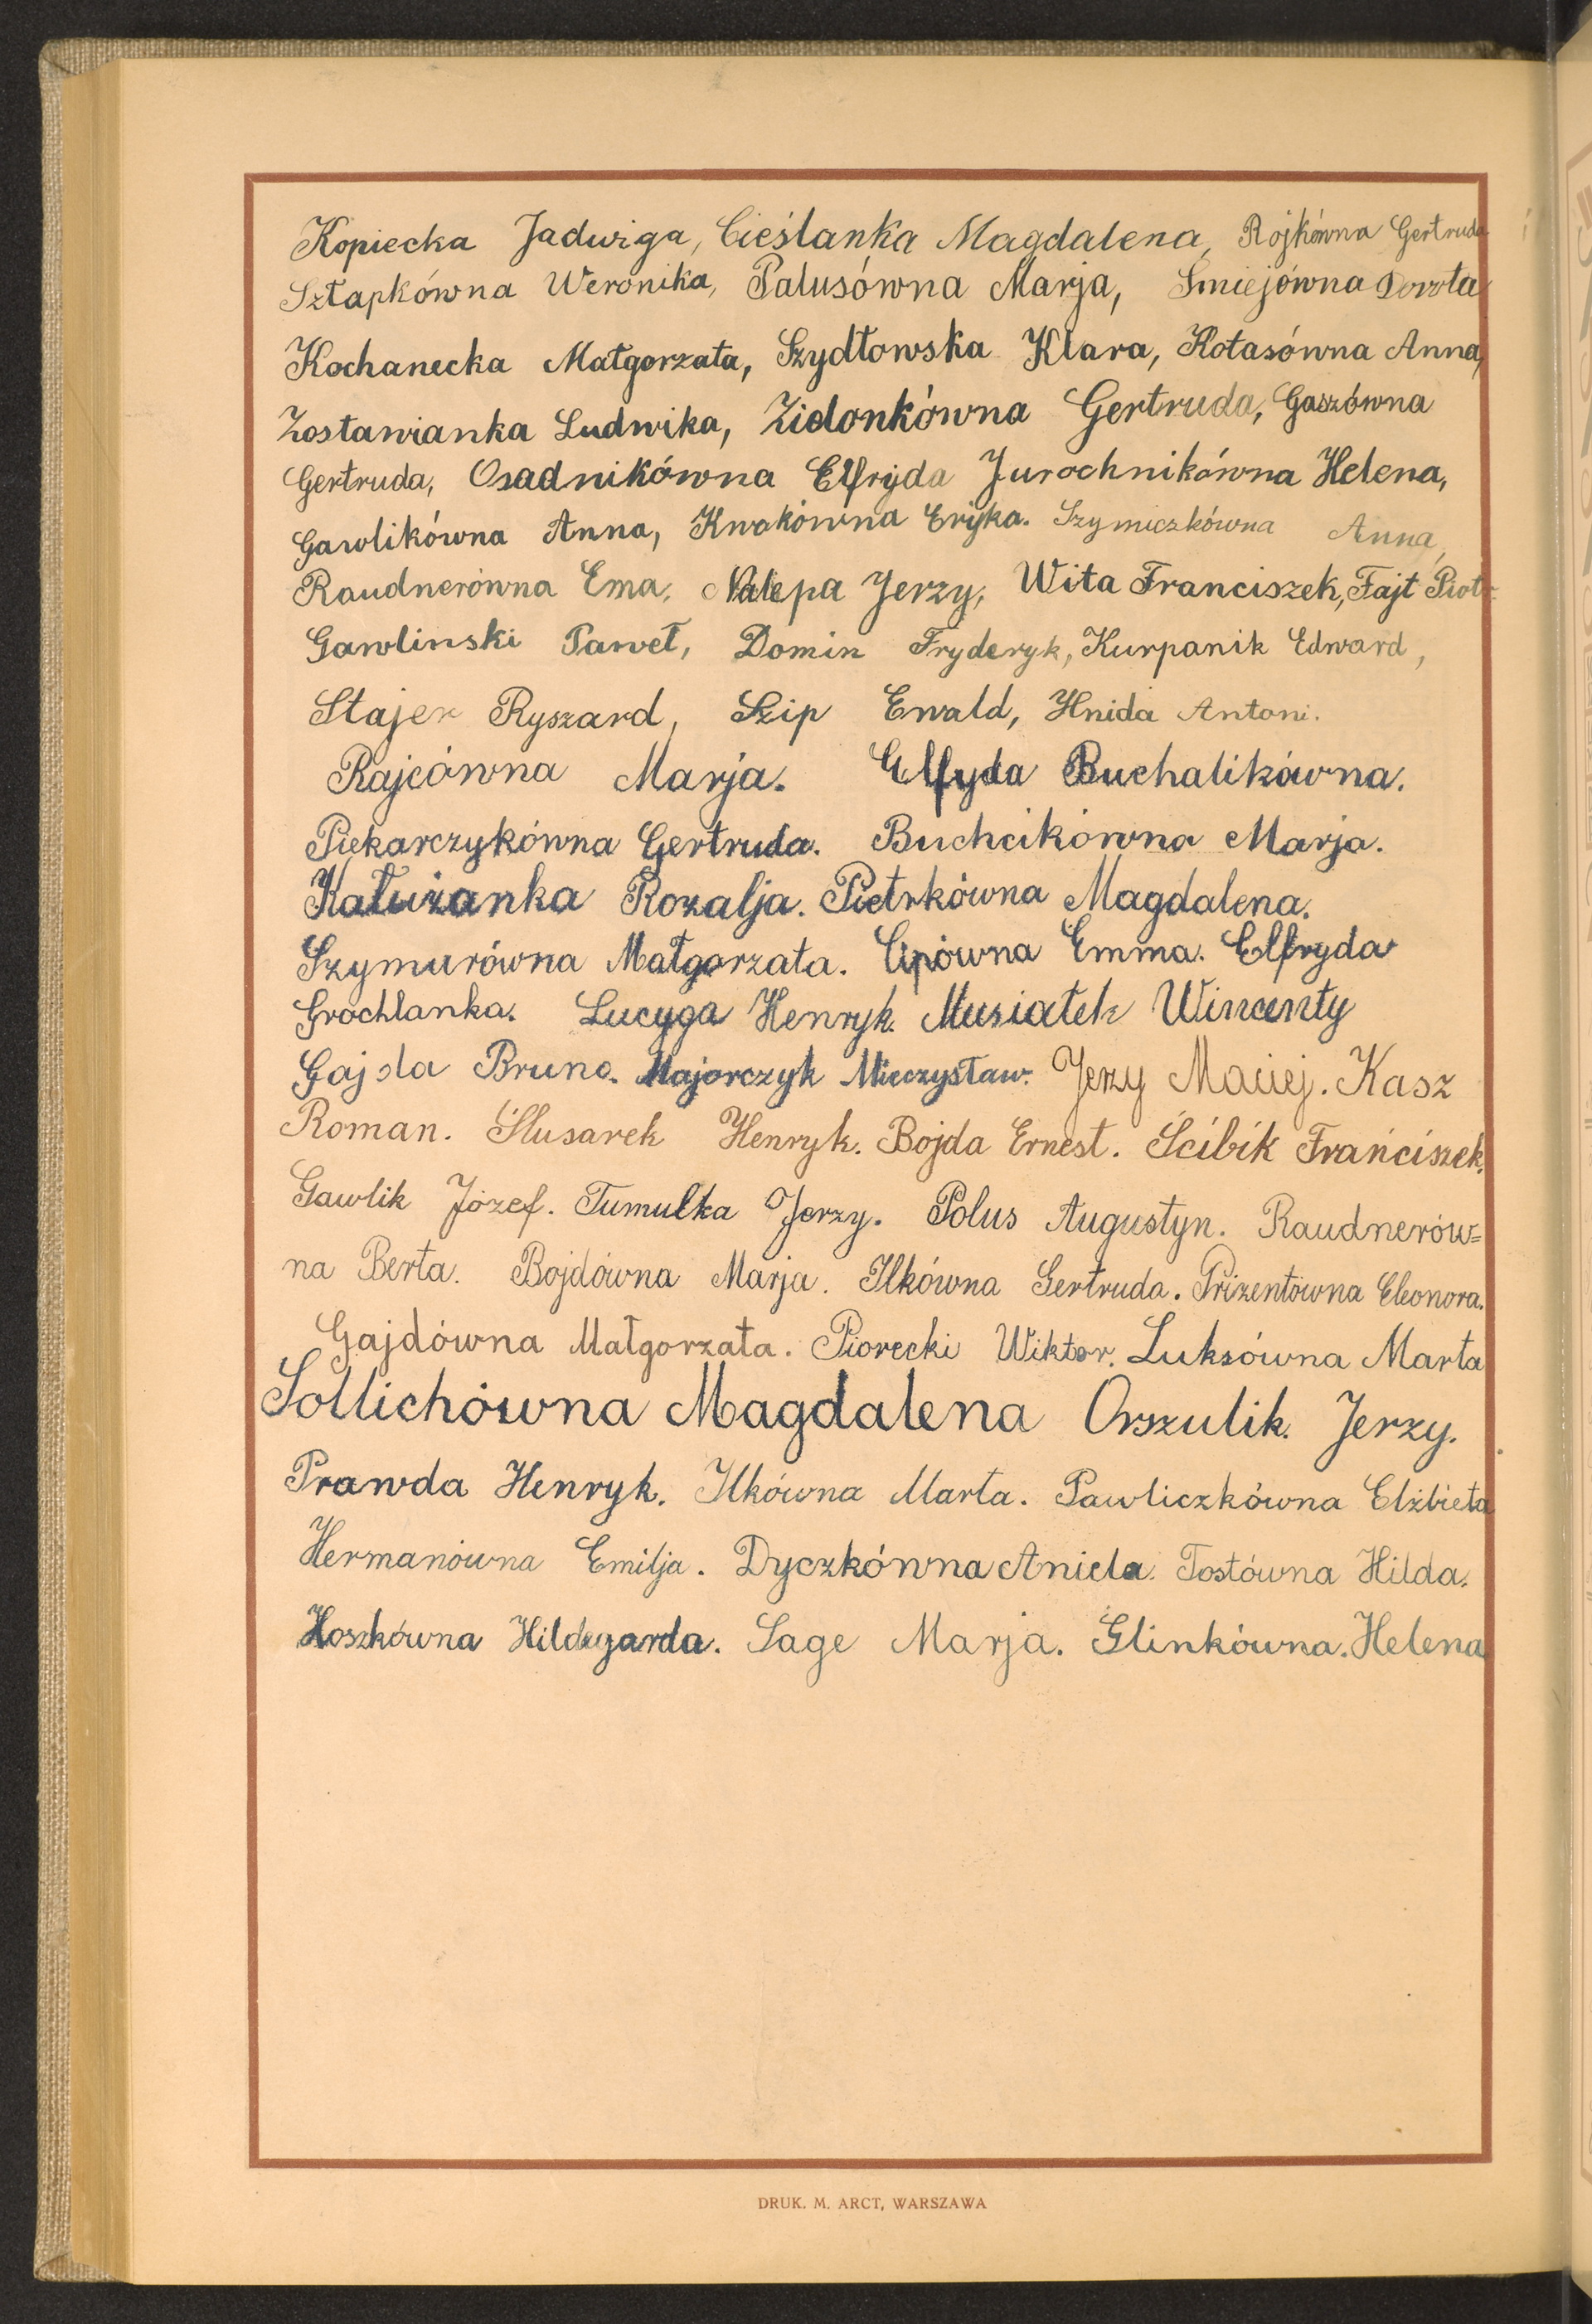 Kopiecka Jadwiga, Cieślanka Magdalena, Rojkówna Gertruda
Sztapkówna Weronika, Palusówna Marja, Smiejówna Dorota
Kochanecka Małgorzata, Szydłowska Klara, Kotasówna Anna,
Zostawianka Ludwika, Zidonkówna Gertruda, Gaszówna
Gertruda, Osadnikówna Elfryda Jurochnikówna Helena,
Gawlikówna Anna, Kwokówna Eryka. Szymiczkówna Anna,
Raudnerówna Ema, Nalepa Jerzy, Wita Franciszek, Fajt Piotr
Gawlinski Paweł, Domin Fryderyk, Kurpanik Edward,
Stajer Ryszard, Szip Ewald, Hnida Antoni.
Rajcówna Marja. Elfyda Buchalikówna.
Piekarczykówna Gertruda. Buchcikówna Marja.
Kałużanka Rozalja. Pietrkówna Magdalena.
Szymurówna Małgorzata. Cipówna Emma. Elfryda
Grochlanka. Lucyga Henryk. Musiałek Wincenty
Gajda Bruno. Majorczyk Mieczysław. Jerzy Maciej. Kasz
Roman. Ślusarek Henryk. Bojda Ernest. Ścibik Franciszek.
Gawlik Józef. Tumulka Jerzy. Polus Augustyn. Raudnerów=
na Berta. Bojdówna Marja. Ilkówna Gertruda. Prizentówna Eleonora.
Gajdówna Małgorzata. Piorecki Wiktor. Luksówna Marta
Sollichówna Magdalena Orszulik. Jerzy.
Prawda Henryk. Ilkówna Marta. Pawliczkówna Elżbieta
Hermanówna Emilja. Dyczkówna Aniela. Tostówna Hilda.
Hoszkówna Hildegarda. Sage Marja. Glinkówna. Helena
DRUK. M. ARCT, WARSZAWA